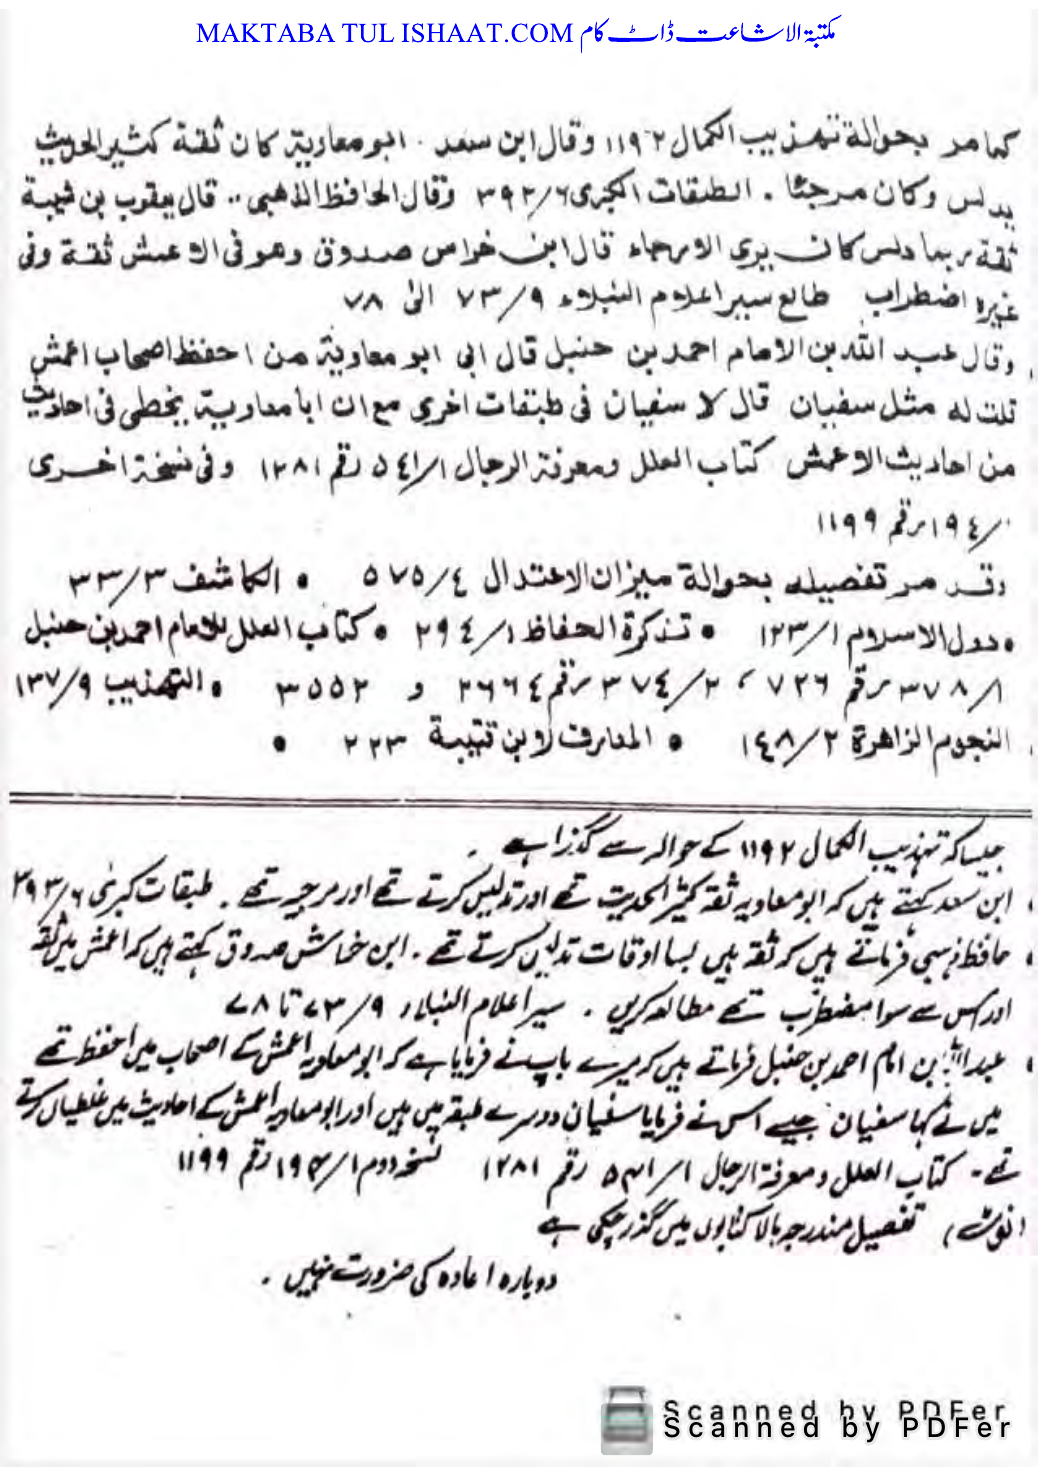 MAKTABA TUL ISHAAT.COM مکتبۃ الاشاعت ڈاٹ کام
كما مر بحوالة تهذيب الكمال ١١٩٢ وقال ابن سعد . ابو معاوية كان ثقة كثير الحديث
يدلس وكان مرجئا . الطبقات الكبرى ٣٩٢/٦ وقال الحافظ الذهبي .. قال يعقوب بن شيبة
ثقة ربما دلس كان يرى الارجاء قال ابن خراس صدوق وهو فى الاعمش ثقة وفى
غيره اضطراب طالع سير اعلام النبلاء ٧٣/٩ الى ٧٨
وقال عبد الله بن الامام احمد بن حنبل قال ابى ابو معاوية من احفظ اصحاب اعمش
قلت له مثل سفيان قال لا سفيان فى طبقات اخرى مع ان ابا معاوية يخطى فى احاديث
من احاديث الاعمش كتاب العلل ومعرفة الرجال ٥٤١/١ رقم ١٢٨١ وفى نسخة اخرى
١٩٤/١ رقم ١١٩٩
وقد مر تفصيله بحوالة ميزان الاعتدال ٥٧٥/٤ • الكاشف ٣٣/٣
• دول الاسلام ١٢٣/١ • تذكرة الحفاظ ٢٩٤/١ • كتاب العلل للامام احمد بن حنبل
٣٧٨/١ رقم ٧٢٦ ، ٣٧٤/٢ رقم ٢٦٦٤ و ٣٥٥٢ • التهذيب ١٣٧/٩
النجوم الزاهرة ١٤٨/٢ • المعارف لابن قتيبة ٢٢٣ •
جیسا کہ تہذیب الکمال ۱۱۹۲ کے حوالہ سے گذرا ہے .
ابن سعد کہتے ہیں کہ ابو معاویہ ثقہ کثیر الحدیث تھے اور تدلیس کرتے تھے اور مرجیہ تھے . طبقات کبریٰ ۳۹۲/۶
حافظ ذہبی فرماتے ہیں کہ ثقہ ہیں بسا اوقات تدلیس کرتے تھے . ابن خاش صدوق کہتے ہیں کہ اعمش میں ثقہ
اور اس سے سوا مضطرب تھے مطالعہ کریں . سیر اعلام النبلاء ۷۳/۹ تا ۷۸
عبد اللہ بن امام احمد بن حنبل فرماتے ہیں کہ میرے باپ نے فرمایا ہے کہ ابو معاویہ اعمش کے اصحاب میں احفظ تھے
میں نے کہا سفیان جیسے اس نے فرمایا سفیان دوسرے طبقہ میں ہیں اور ابو معاویہ اعمش کے احادیث میں غلطیاں کرتے
تھے - کتاب العلل و معرفۃ الرجال ۵۴۱/۱ رقم ۱۲۸۱ نسخہ دوم ۱۹۴/۱ رقم ۱۱۹۹
(نوٹ) تفصیل مندرجہ بالا کتابوں میں گذر چکی ہے
دوبارہ اعادہ کی ضرورت نہیں .
Scanned by PDFer
Scanned by PDFer